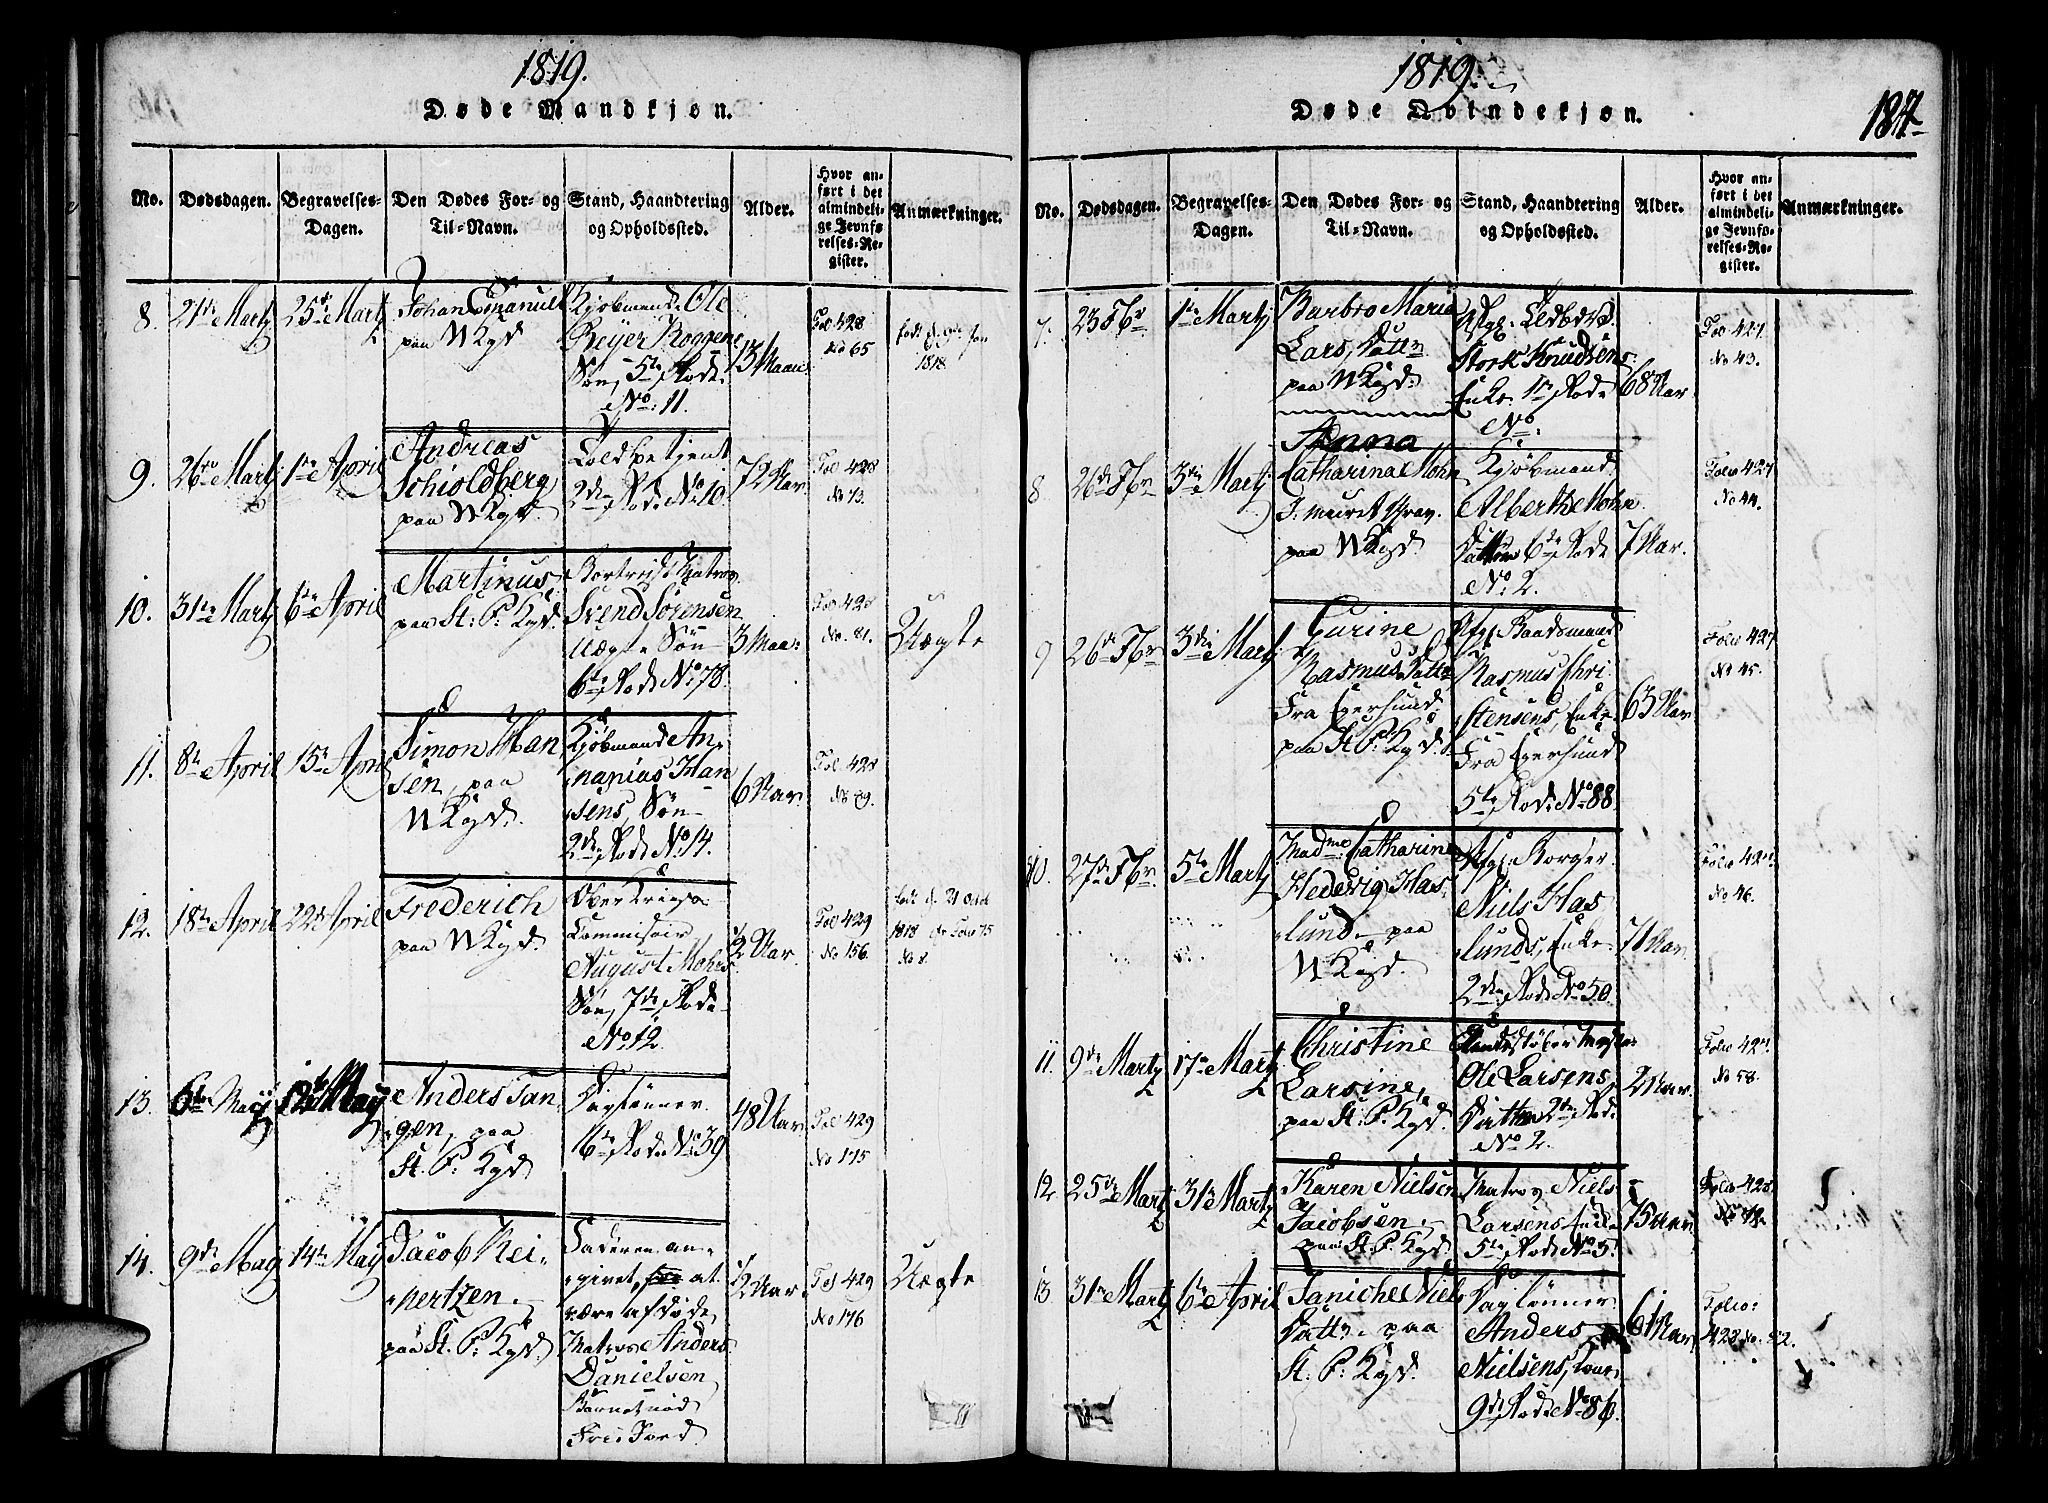 1819.
Døde Mandkjøn.
No.
Dødsdagen.
Begravelses-
Dagen.
Den Dødes For- og
Til-Navn.
Stand, Haandtering
og Opholdssted.
Alder.
Hvor an-
ført i det
almindeli-
ge Jevnfø-
relses-Re-
gister.
Anmærkninger.
8.
21de Martj
25de Martj
Johan Emanuel
paa NKgd
Kjøbmand Ole
Beyer Roggene
Søn, 5te Rode
No: 11.
13 Maan
Fol 428
No 65
født d. 9de Jan
1818
9.
26de Martj
1te April
Andreas
Schioldberg
paa NKgd.
Toldbetjent
2den Rode No 10.
72 Aar
Fol 428
No 73.
10.
31te Martj
6te April
Martinus
paa St: P: Kgd.
Bortreist Matros
Svend Sörensen
Uægte Sön
6te Rode No 78.
3 Maan:
Fol 428
No. 81.
Uægte
11.
8de April
15de April
Simon Han
sen, paa
NKgd.
Kjøbmand An,
nanias Han
sens, Sön
2den Rode No 14.
6 Aar.
Fol. 428
No 89.
12.
18de April
22de April
Frederich
paa NKgd.
Ober Krigs
Commissair
August Mohrs
Søn, 7de Rode
No. 12.
1/2 Aar.
Fol 429
No 156.
født d. 21 Octb
1818 fr Folio 75
No 8.
13.
6te Maj
12te May
Anders Tan
gen, paa
St. P: Kgd
Daglønner
16te Rode No 39
48 Aar.
Fol 429
No 175
14.
9de May
14de May
Jacob Rei-
nertzen
paa St. P: Kgd.
Faderen an-
givet, at
være afdøde
Matros Anders
Danielsen
Barnet nød
Frie Jord.
1/2 Aar.
Fol 429
No 176
Uægte
1819.
Døde Qvindekjøn.
187
No.
Dødsdagen.
Begravelses-
Dagen.
Den Dødes For- og
Til-Navn.
Stand, Haandtering
og Opholdssted.
Alder.
Hvor an-
ført i det
almindeli-
ge Jevnfø-
relses-Re-
gister.
Anmærkninger.
7.
23 Fbr
1te Martj
Barbro Maria
Lars, Dattr
paa NKgd.
Afgl.
Stork Knudsens
Enke 1te Rode
No.
68 Aar
Fol 427
No 43.
8
26de Fbr
3die Martj
Anna
Catharina Mohn
paa NKgd
Kjøbmand
Alberth Mohn
Datter 6te Rode
No 2.
7 Aar.
Folio 427
No 44.
9
26de Fbr
3die Martj
Gurine
Rasmus Dattr
Fra Egersund
paa St. P: Kgd.
Afgl. Baadsmand
Rasmus Chri
stensens, Enke
Fra Egersund
5te Rode No 88.
63 Aar
Folio 427
No 45.
10.
27de Fbr.
5te Martj
Madme Catharine
Hedevig Has
lund paa
NKgd.
Afgl. Borger
Niels Has
lunds, Enke
2den Rode No 50.
71 Aar
Folio 427.
No 46.
11.
9de Martj
17de Martj
Christine
Larsine,
paa St. P: Kgd.
Ole Larsens
Datter 2den Rod.
No 2.
2 Aar.
Folio 427.
No 58.
12.
25de Martj
31te Martj
Karen Nielsen
Jacobsen
paa St. P. Kgd
Matros Niels
Larsens Enke
5te Rode No 5.
75 Aar.
Folio 428
13.
31te Martj
6te April
Janiche Niels
Dattr. paa
St. P: Kgd.
Daglønner
Anders
Nielsens, Kone
9de Rode No 86.
61 Aar
Folio:
428 No. 82.